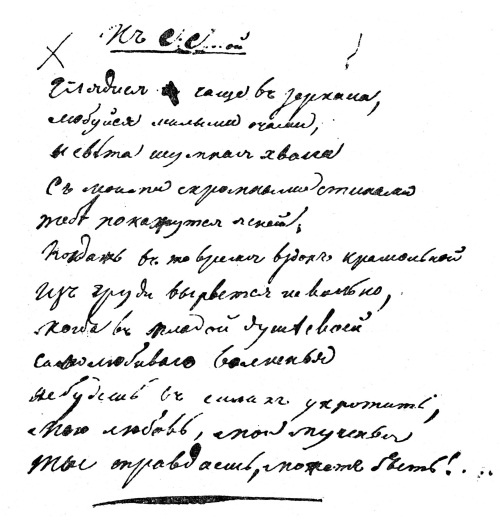 Къ С. С....ой
Глядися чаще въ зеркала,
любуйся милыми очами,
и свѣта шумная хвала
Съ моими скромными стихами
тебѣ покажутся ясней;
Когдажъ въ то время вздохъ крамольной
Изъ груди вырвется невольно,
когда въ младой душѣ своей
самолюбиваго волненья
не будешь въ силахъ укротить,
Мою любовь, мои мученья
Ты оправдаешь, можетъ быть!...